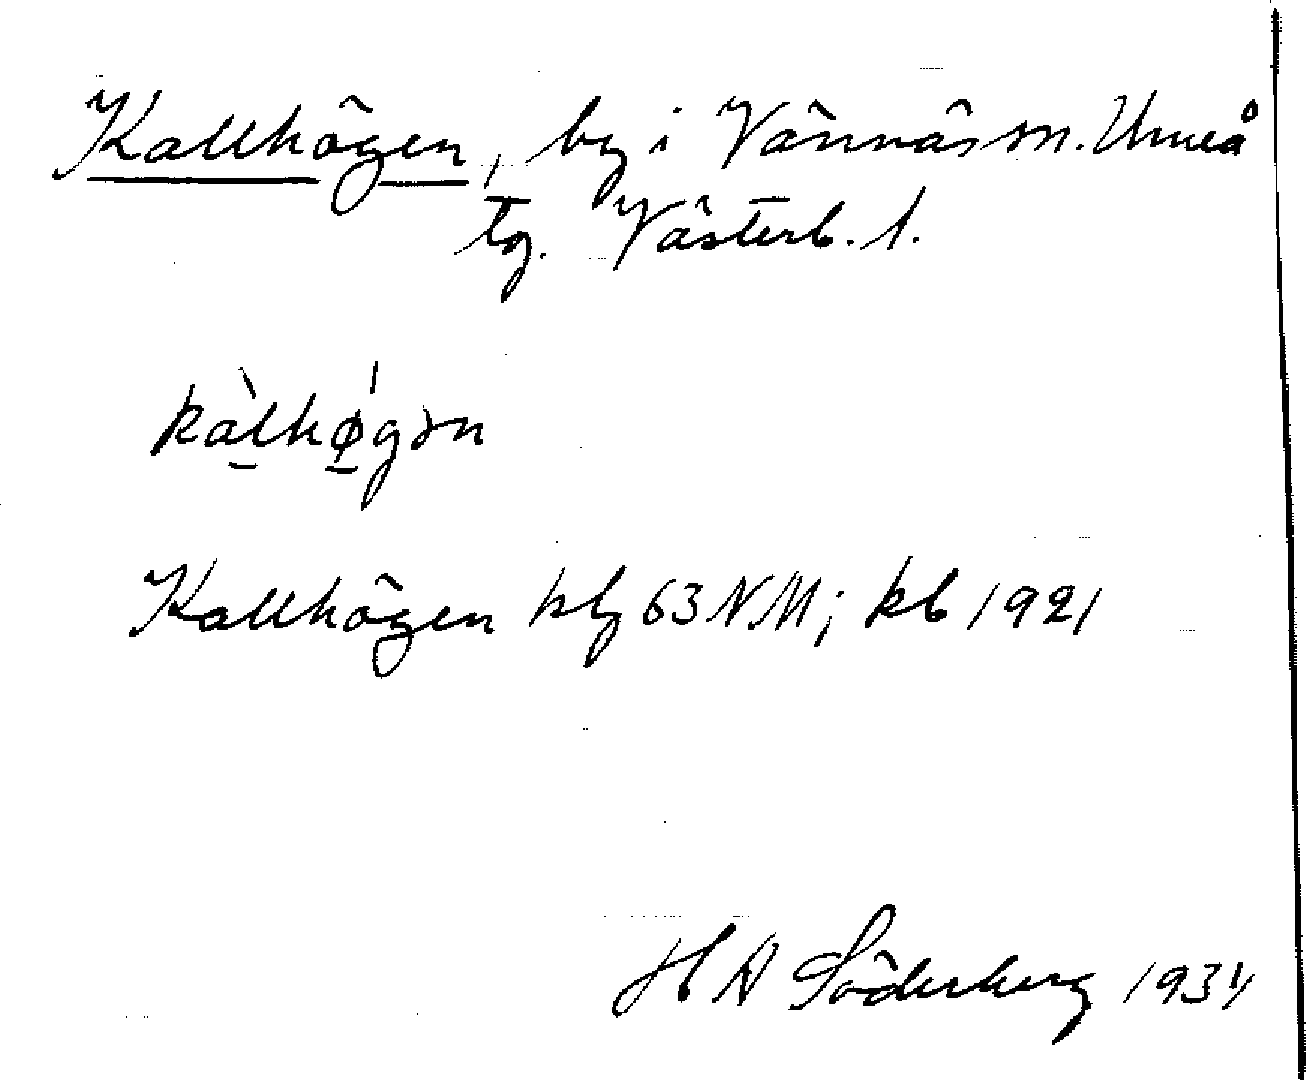 Kallhögen, by i Vännäs sn. Umeå
tg. Västerb. l.
kàlhǿgən
Kallhögen kbl 63 NM; kb 1921
H A Söderberg 1934